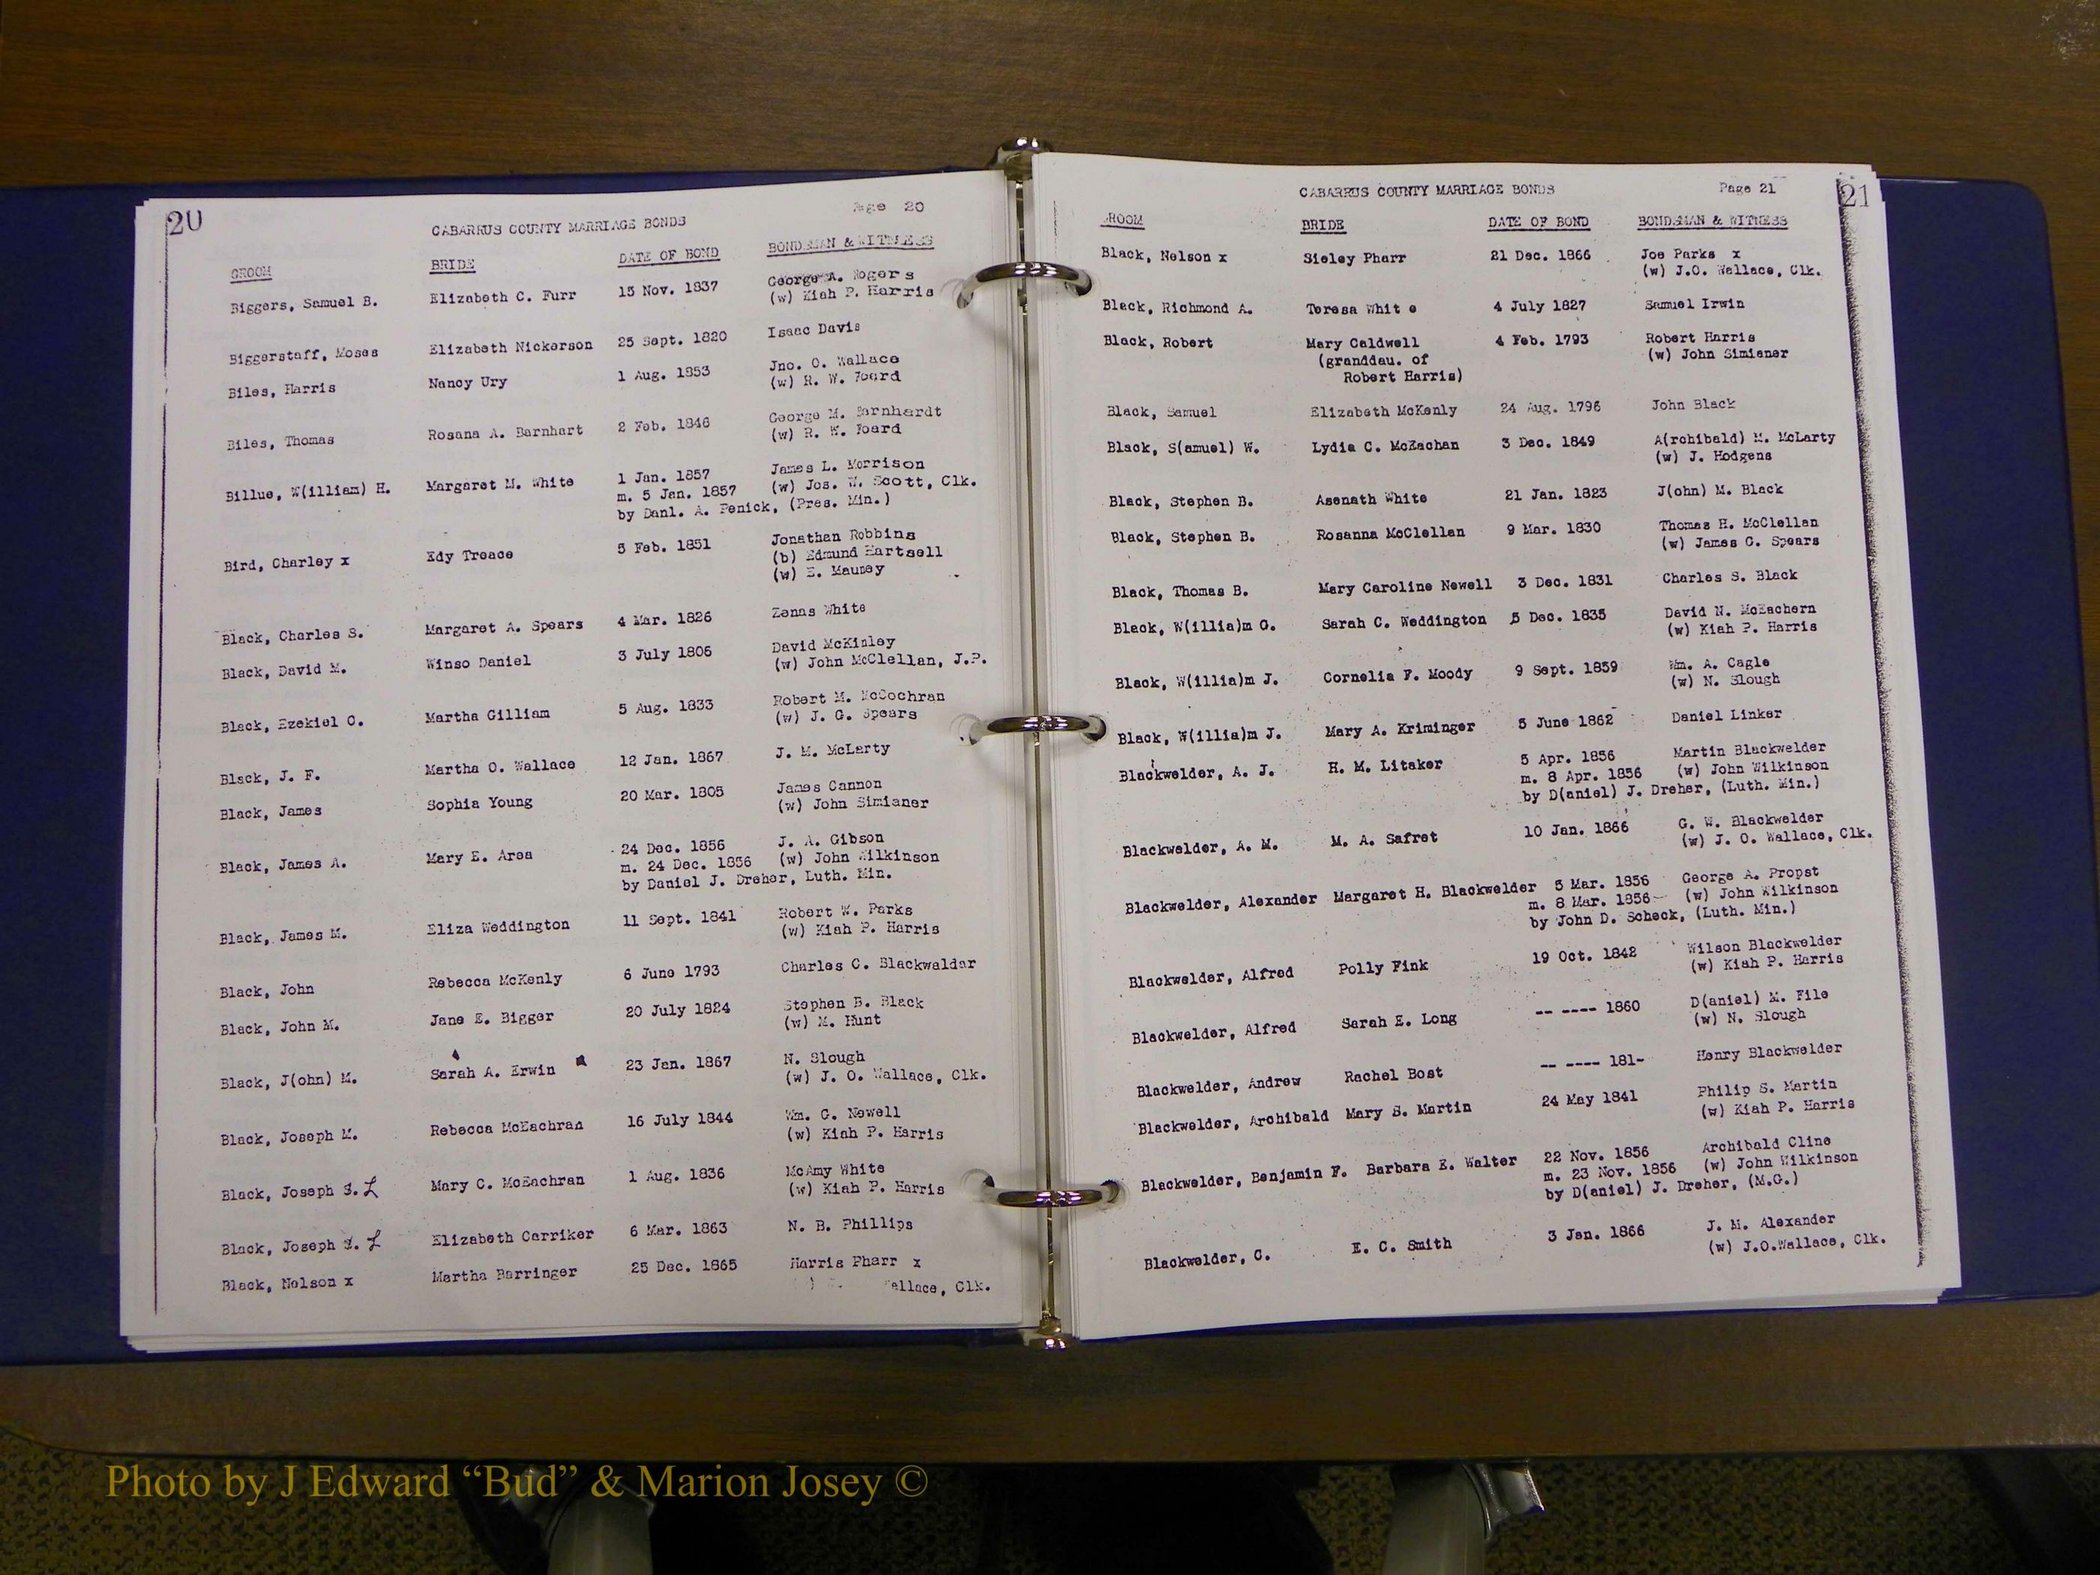 20
Page 20
CABARRUS COUNTY MARRIAGE BONDS
GROOM BRIDE DATE OF BOND BONDSMAN & WITNESS
Biggers, Samuel B. Elizabeth C. Furr 15 Nov. 1837 George A. Rogers
(w) Kiah P. Harris
Biggerstaff, Moses Elizabeth Nickerson 25 Sept. 1820 Isaac Davis
Biles, Harris Nancy Ury 1 Aug. 1853 Jno. O. Wallace
(w) R. W. Foard
Biles, Thomas Rosana A. Barnhart 2 Feb. 1846 George M. Barnhardt
(w) R. W. Foard
Billue, W(illiam) H. Margaret M. White 1 Jan. 1857 James L. Morrison
m. 5 Jan. 1857 (w) Jos. W. Scott, Clk.
by Danl. A. Penick, (Pres. Min.)
Bird, Charley x Edy Treace 5 Feb. 1851 Jonathan Robbins
(b) Edmund Hartsell
(w) E. Mauney
Black, Charles S. Margaret A. Spears 4 Mar. 1826 Zenas White
Black, David M. Winso Daniel 3 July 1806 David McKinley
(w) John McClellan, J.P.
Black, Ezekiel C. Martha Gilliam 5 Aug. 1833 Robert M. McCochran
(w) J. G. Spears
Black, J. F. Martha O. Wallace 12 Jan. 1867 J. M. McLarty
Black, James Sophia Young 20 Mar. 1805 James Cannon
(w) John Simianer
Black, James A. Mary E. Area 24 Dec. 1856 J. A. Gibson
m. 24 Dec. 1856 (w) John Wilkinson
by Daniel J. Dreher, Luth. Min.
Black, James M. Eliza Weddington 11 Sept. 1841 Robert W. Parks
(w) Kiah P. Harris
Black, John Rebecca McKenly 6 June 1793 Charles C. Blackwaldar
Black, John M. Jane E. Bigger 20 July 1824 Stephen B. Black
(w) M. Hunt
Black, J(ohn) M. Sarah A. Erwin 23 Jan. 1867 N. Slough
(w) J. O. Wallace, Clk.
Black, Joseph M. Rebecca McEachran 16 July 1844 Wm. G. Newell
(w) Kiah P. Harris
Black, Joseph S. L Mary C. McEachran 1 Aug. 1836 McAmy White
(w) Kiah P. Harris
Black, Joseph S. L Elizabeth Carriker 6 Mar. 1863 N. B. Phillips
Black, Nelson x Martha Barringer 25 Dec. 1865 Harris Pharr x
Wallace, Clk.
Page 21
21
CABARRUS COUNTY MARRIAGE BONDS
GROOM BRIDE DATE OF BOND BONDSMAN & WITNESS
Black, Nelson x Sieley Pharr 21 Dec. 1866 Joe Parks x
(w) J.O. Wallace, Clk.
Black, Richmond A. Teresa Whit e 4 July 1827 Samuel Irwin
Black, Robert Mary Caldwell 4 Feb. 1793 Robert Harris
(granddau. of (w) John Simianer
Robert Harris)
Black, Samuel Elizabeth McKenly 24 Aug. 1796 John Black
Black, S(amuel) W. Lydia C. McEachan 3 Dec. 1849 A(rchibald) M. McLarty
(w) J. Hodgens
Black, Stephen B. Asenath White 21 Jan. 1823 J(ohn) M. Black
Black, Stephen B. Rosanna McClellan 9 Mar. 1830 Thomas H. McClellan
(w) James G. Spears
Black, Thomas B. Mary Caroline Newell 3 Dec. 1831 Charles S. Black
Black, W(illia)m G. Sarah C. Weddington 5 Dec. 1835 David N. McEachern
(w) Kiah P. Harris
Black, W(illia)m J. Cornelia F. Moody 9 Sept. 1859 Wm. A. Cagle
(w) N. Slough
Black, W(illia)m J. Mary A. Kriminger 5 June 1862 Daniel Linker
Blackwelder, A. J. H. M. Litaker 5 Apr. 1856 Martin Blackwelder
m. 8 Apr. 1856 (w) John Wilkinson
by D(aniel) J. Dreher, (Luth. Min.)
Blackwelder, A. M. M. A. Safret 10 Jan. 1866 G. W. Blackwelder
(w) J. O. Wallace, Clk.
Blackwelder, Alexander Margaret H. Blackwelder 5 Mar. 1856 George A. Propst
m. 8 Mar. 1856 (w) John Wilkinson
by John D. Scheck, (Luth. Min.)
Blackwelder, Alfred Polly Fink 19 Oct. 1842 Wilson Blackwelder
(w) Kiah P. Harris
Blackwelder, Alfred Sarah E. Long -- ---- 1860 D(aniel) M. File
(w) N. Slough
Blackwelder, Andrew Rachel Bost -- ---- 181- Henry Blackwelder
Blackwelder, Archibald Mary S. Martin 24 May 1841 Philip S. Martin
(w) Kiah P. Harris
Blackwelder, Benjamin F. Barbara E. Walter 22 Nov. 1856 Archibald Cline
m. 23 Nov. 1856 (w) John Wilkinson
by D(aniel) J. Dreher, (M.G.)
Blackwelder, C. E. C. Smith 3 Jan. 1866 J. M. Alexander
(w) J.O.Wallace, Clk.
Photo by J Edward “Bud” & Marion Josey ©